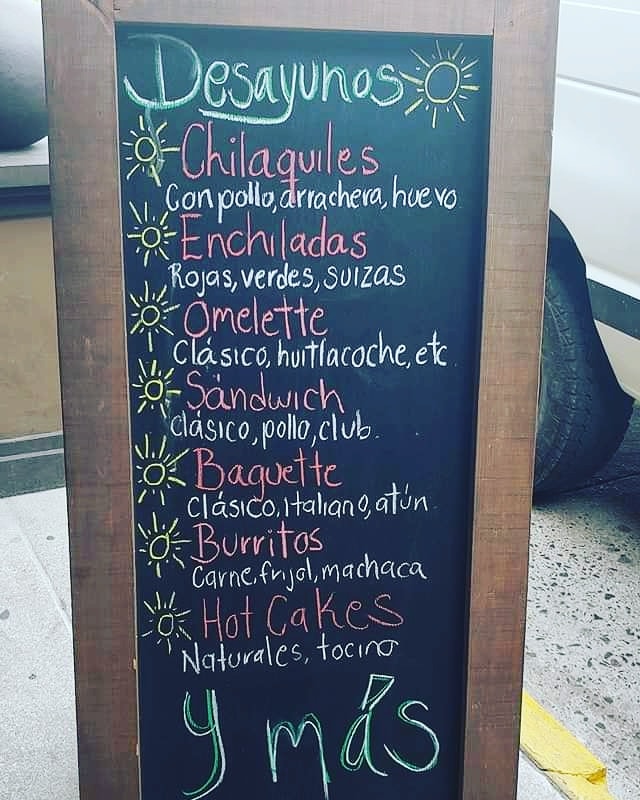 Desayunos
Chilaquiles
Con pollo, arrachera, huevo
Enchiladas
Rojas, verdes, suizas
Omelette
Clásico, huitlacoche, etc
Sándwich
clásico, pollo, club.
Baguette
clásico, italiano, atún
Burritos
Carne, frijol, machaca
Hot Cakes
Naturales, tocino
y más